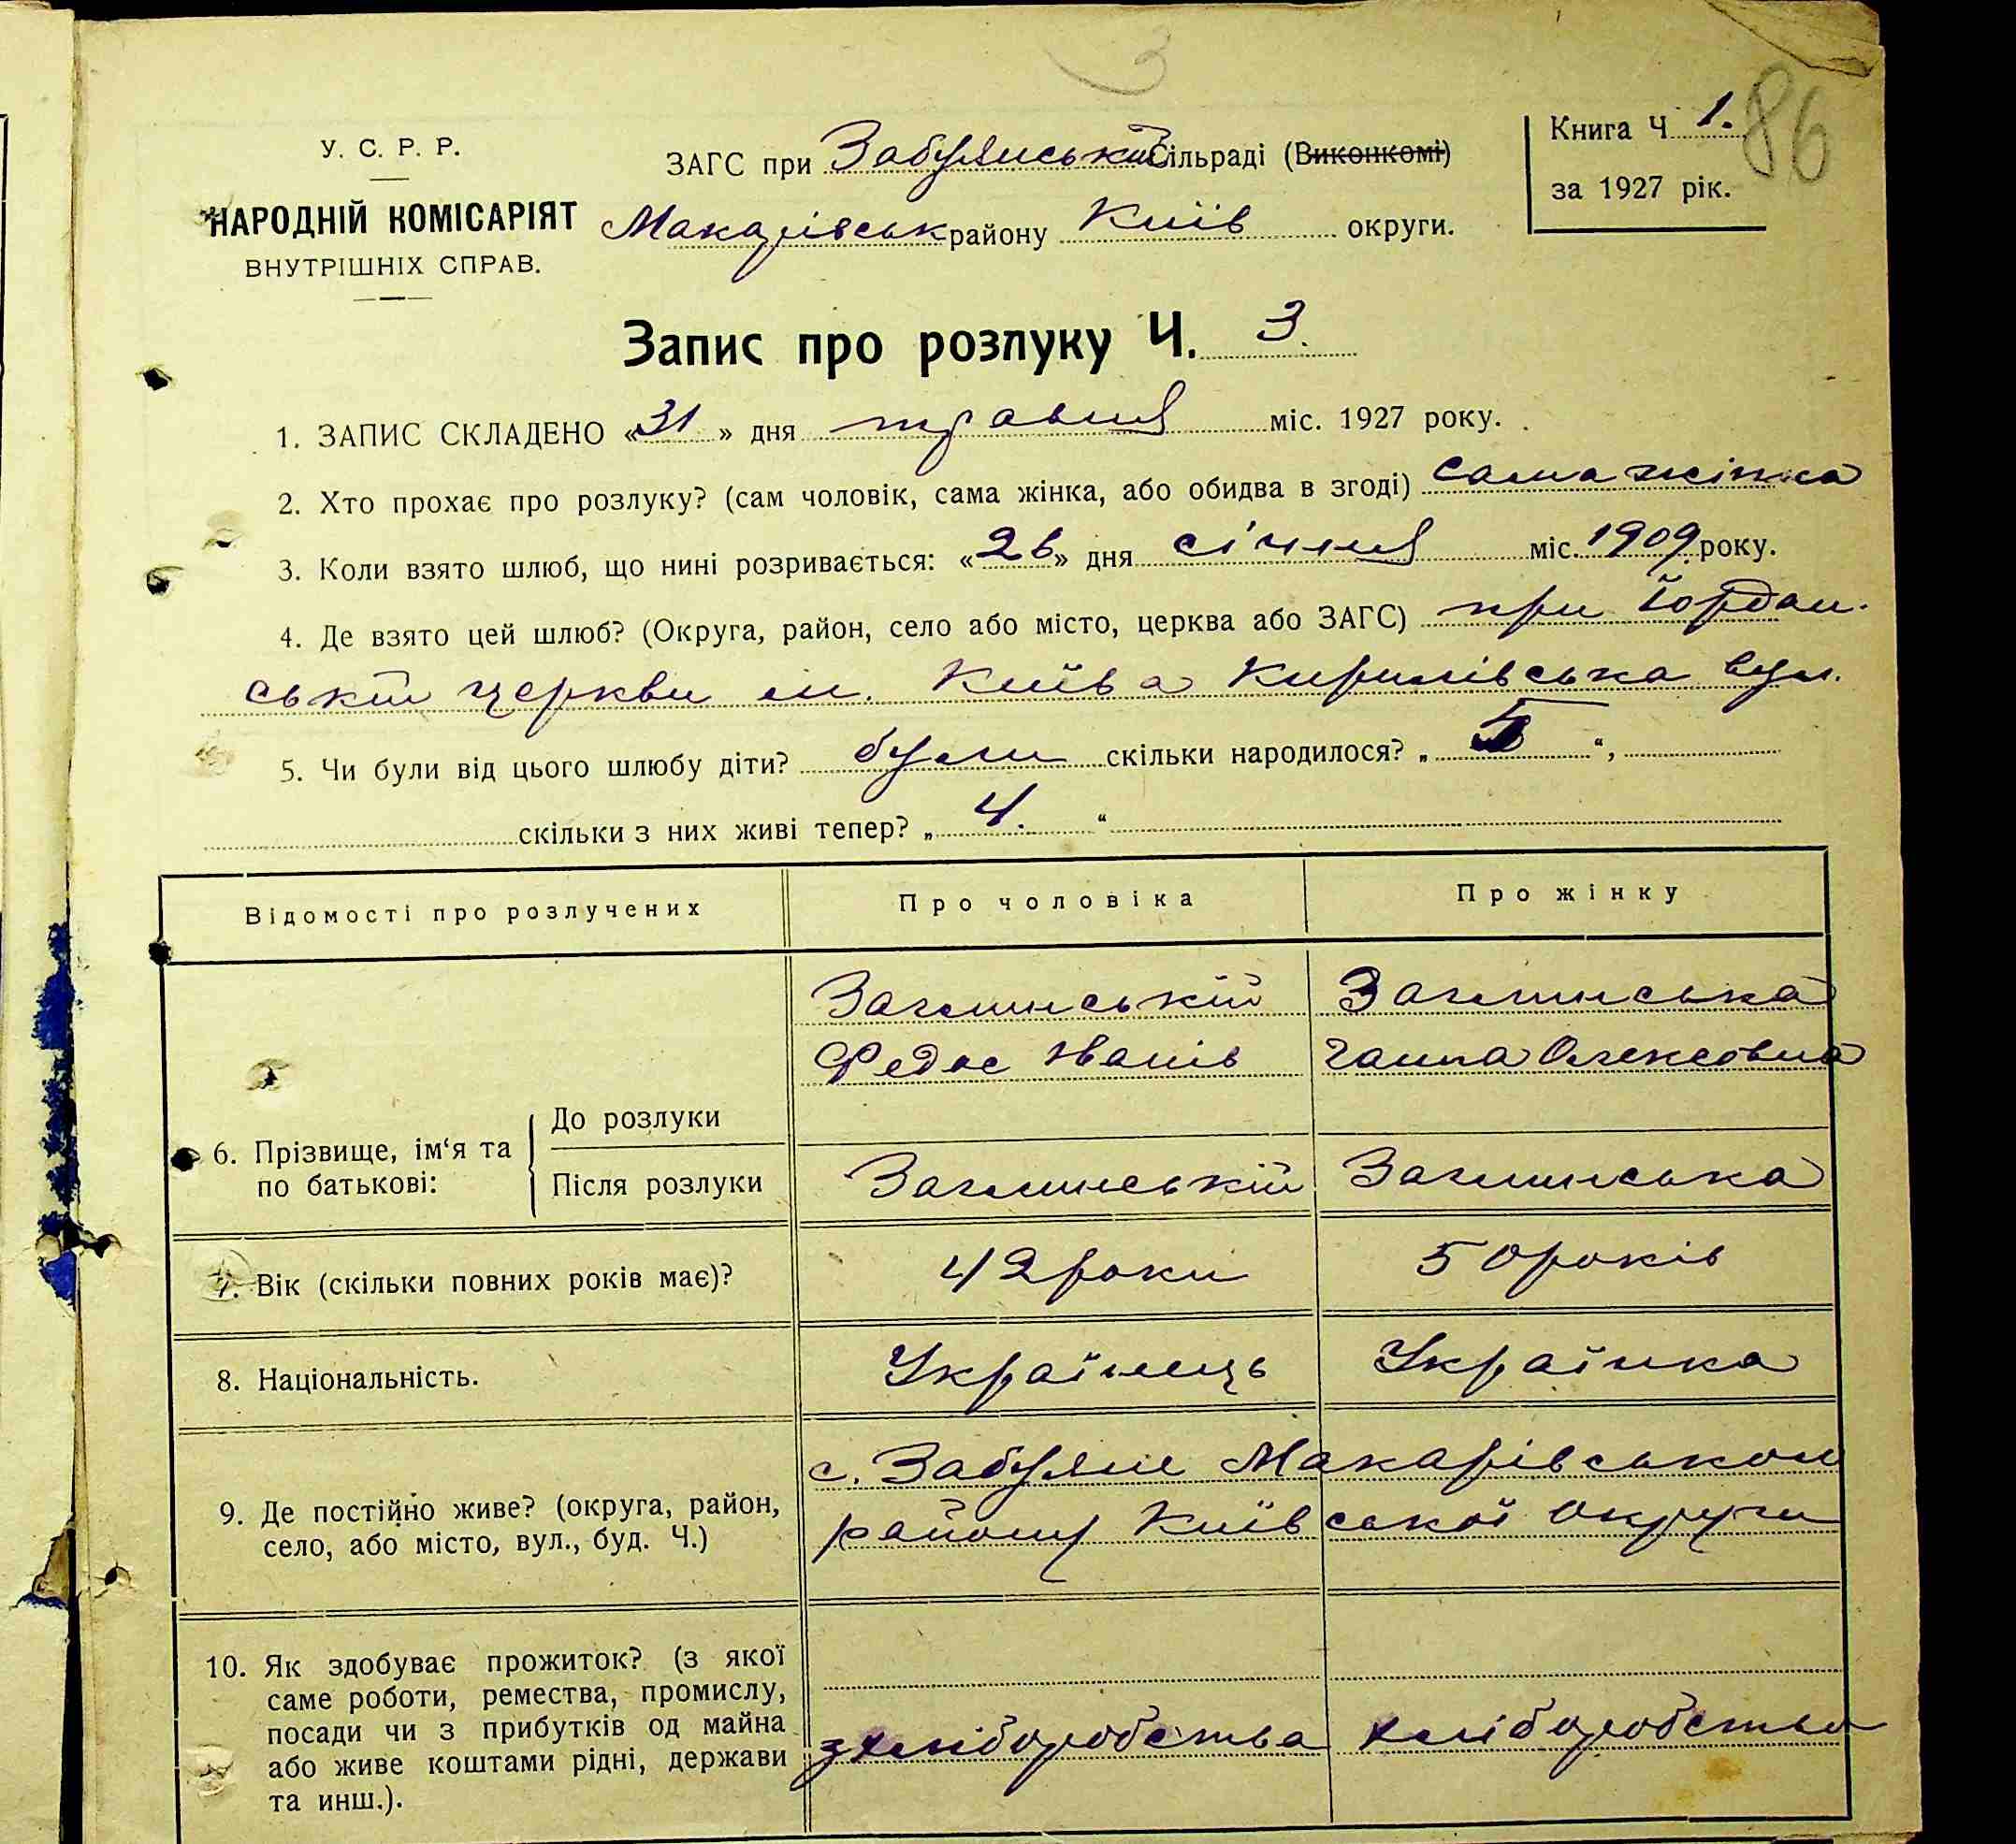 3
86
У. С. Р. Р.
НАРОДНІЙ КОМІСАРІЯТ
ВНУТРІШНІХ СПРАВ.
ЗАГС при Забуянській Сільраді (Виконкомі)
Макарівськ району Київ округи.
Книга Ч 1.
за 1927 рік.
Запис про розлуку Ч. 3.
1. ЗАПИС СКЛАДЕНО «31» дня травня міс. 1927 року.
2. Хто прохає про розлуку? (сам чоловік, сама жінка, або обидва в згоді) сама жінка
3. Коли взято шлюб, що нині розривається: «26» дня січня міс. 1909 року.
4. Де взято цей шлюб? (Округа, район, село або місто, церква або ЗАГС) при Йордан-
ській церкви м. Київа Кирилівська вул.
5. Чи були від цього шлюбу діти? були скільки народилося? „ 5 “,
скільки з них живі тепер? „ 4. “
Відомості про розлучених Про чоловіка Про жінку
6. Прізвище, ім‘я та по батькові:
До розлуки
Федос Иванів Ганна Олексовна
Після розлуки
7. Вік (скільки повних років має)? 42 роки 50 років
8. Національність. Українець Українка
9. Де постійно живе? (округа, район,
село, або місто, вул., буд. Ч.)
с. Забуяне Макарівського
району Київської округи
10. Як здобуває прожиток? (з якої
саме роботи, ремества, промислу,
посади чи з прибутків од майна
або живе коштами рідні, держави
та инш.).
з хліборобства хліборобства